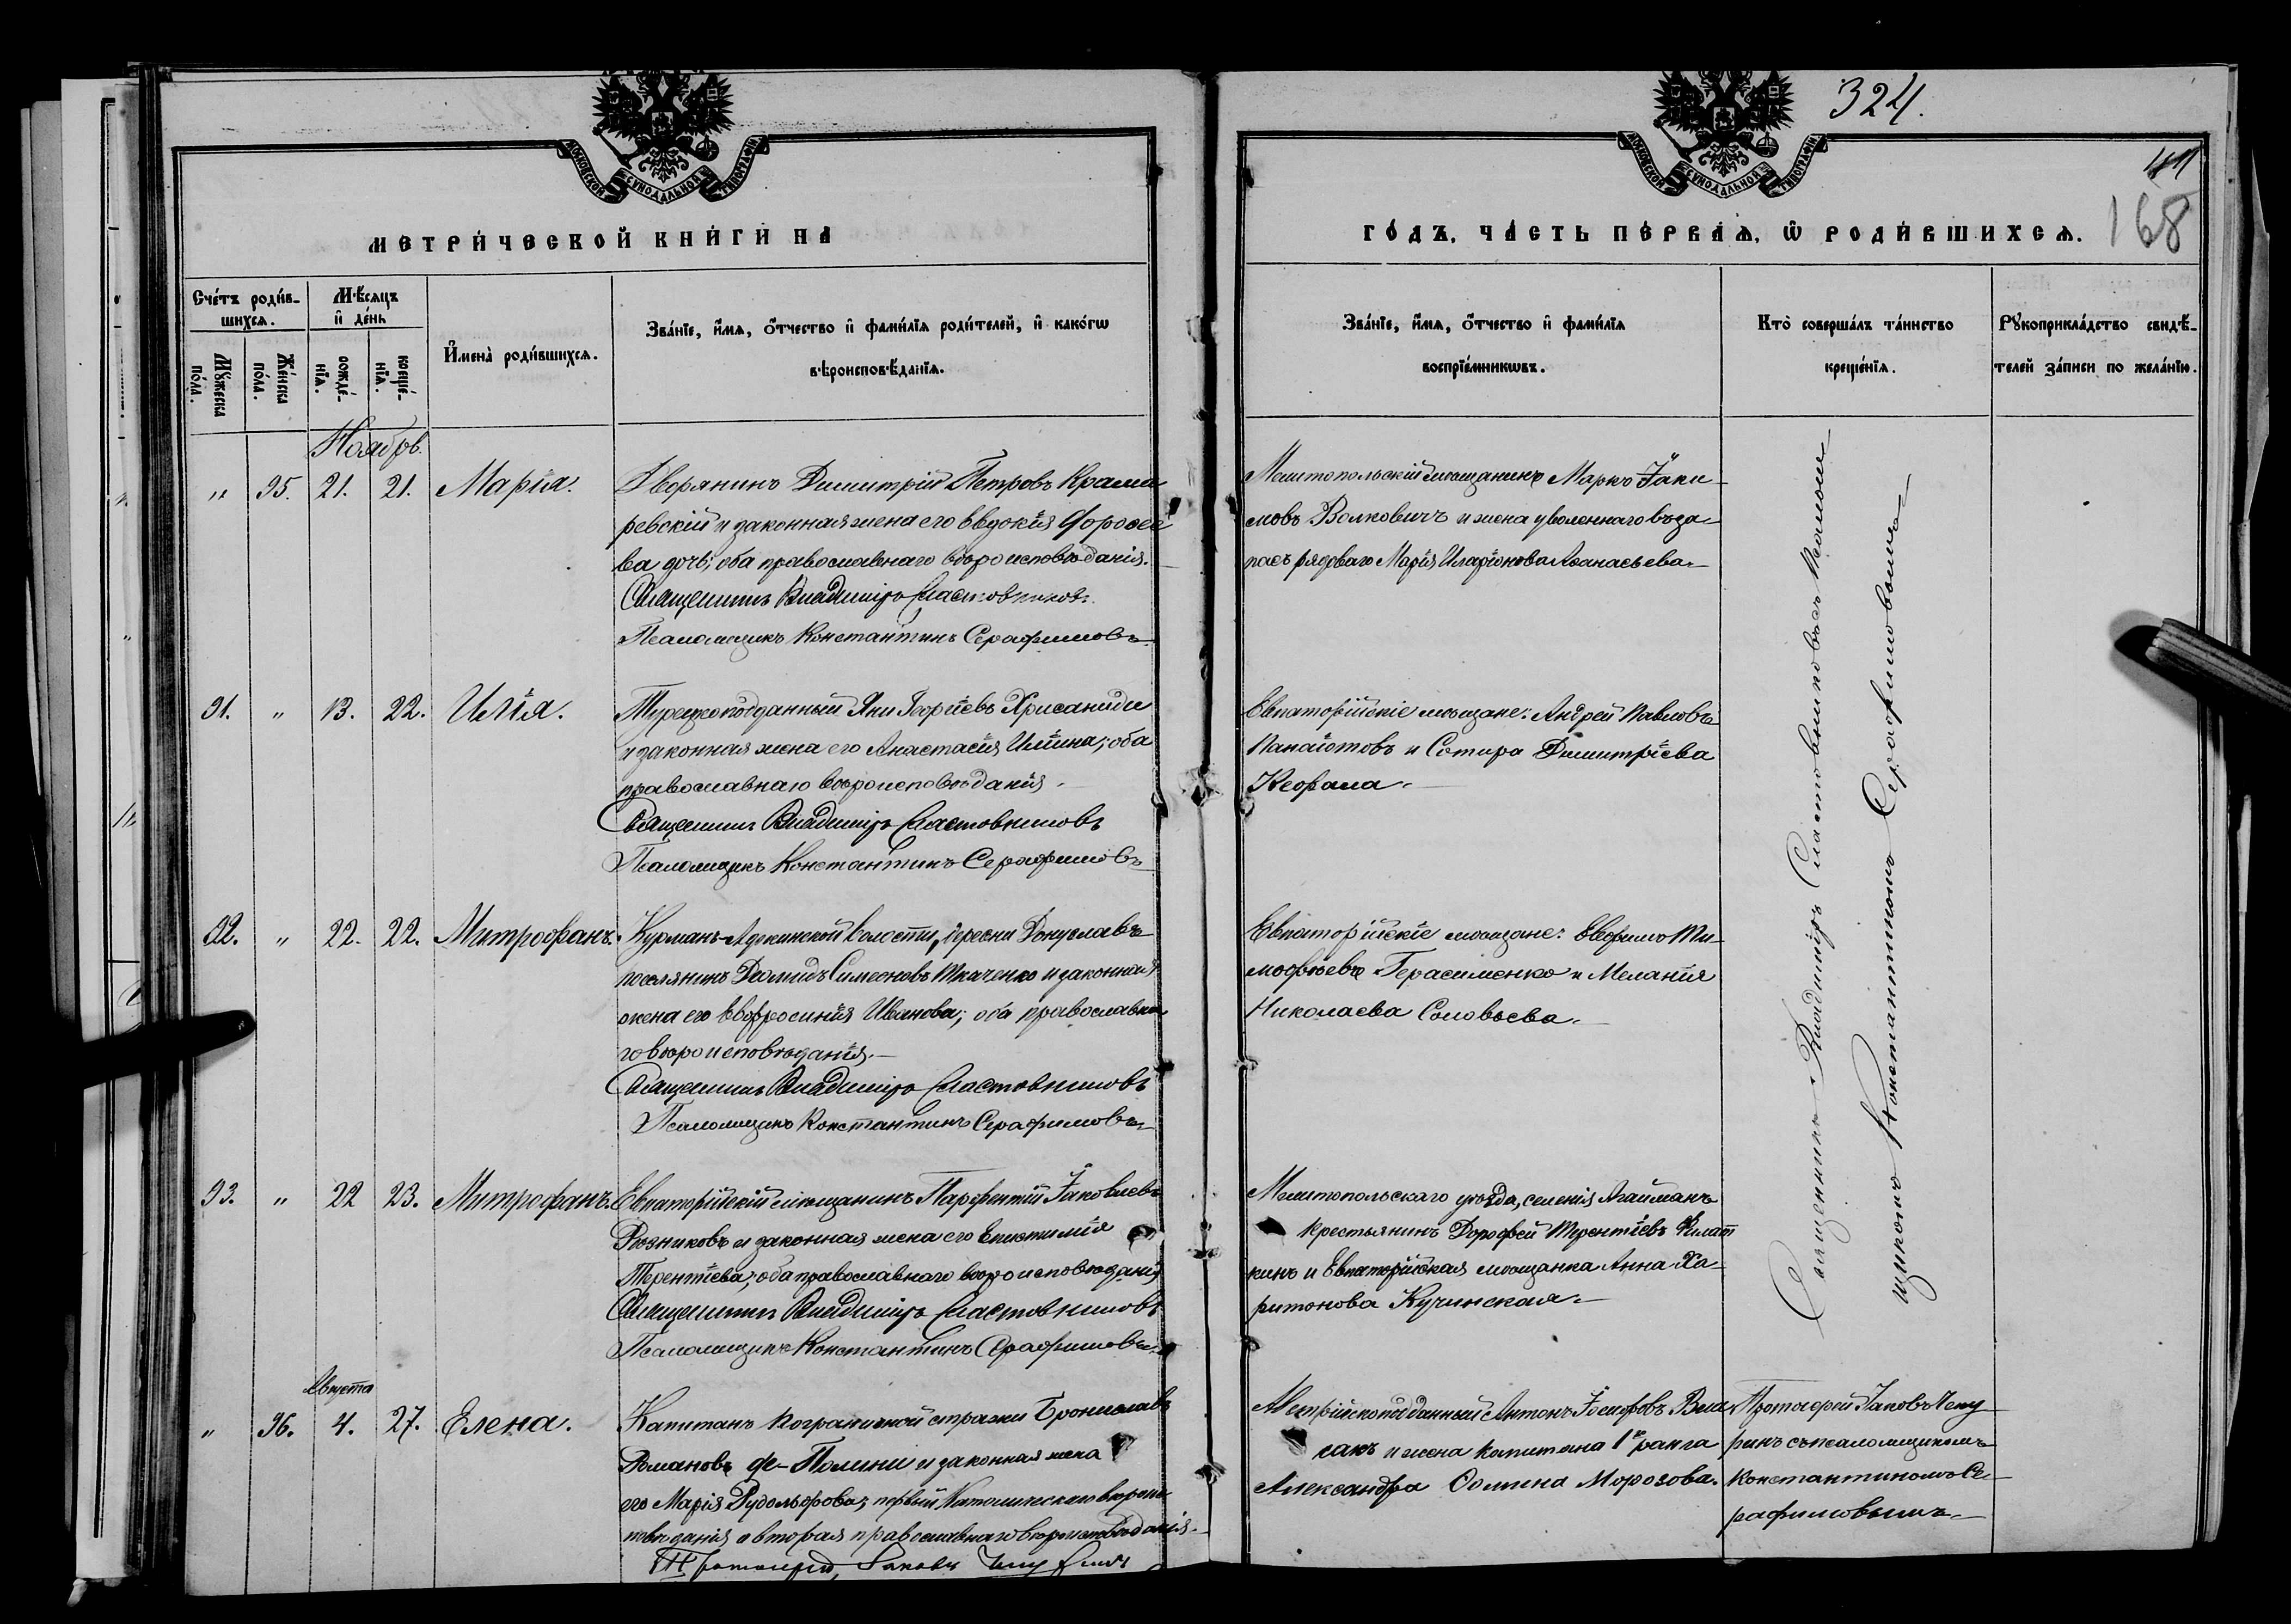 324.
МОСКОВСКОЙ СѴНОДАЛЬНОЙ ТИПОГРАФІИ
МОСКОВСКОЙ СѴНОДАЛЬНОЙ ТИПОГРАФІИ
168
МЕТРИ́ЧЕСКОЙ КНИ́ГИ НА
ГО́ДЪ, ЧА́СТЬ ПЕ́РВАЯ, Ѿ РОДИ́ВШИХСЯ.
Сче́тъ роди́в-
шихся.
Мѣ́сяцъ
и҆ де́нь
Му́жеска
по́ла.
Же́нска
по́ла.
рожде́-
нїя.
креще́-
нїя.
И҆мена̀ роди́вшихся.
Зва́нїе, и҆́мя, ѻ҆́тчество и҆ фами́лїя роди́телей, и҆ како́гѡ
вѣроисповѣ́данїя.
Зва́нїе, и҆́мя, ѻ҆́тчество и҆ фами́лїя
воспрїе́мникѡвъ.
Кто̀ соверша́лъ та́инство
креще́нїя.
Рукоприкла́дство свидѣ́-
телей за́писи по жела́нїю.
Ноябрь.
" 95. 21. 21. Марія.
Дворянинъ Димитрій Петровъ Крама
ревскій и законная жена его Евдокія Фороѳее
ва дочь; оба православнаго вѣроисповѣданія.
Священникъ Владиміръ Сластовниковъ.
Псаломщикъ Константинъ Серафимовъ
Мелитопольскій мѣщанинъ Маркъ Іаки
мовъ Волковичъ и жена уволеннаго въ за-
пасъ рядоваго Марія Иларіонова Аѳанасьева.
Священникъ Владиміръ Сластовниковъ съ псалом-
щикомъ Константиномъ Серафимовымъ
91. " 13. 22. Илія.
Турецкоподданный Яни Георгіевъ Хрисаниди
и законная жена его Анастасія Иліина; оба
православнаго вѣроисповѣданія.
Священникъ Владиміръ Сластовниковъ
Псаломщикъ Константинъ Серафимовъ
Евпаторійскіе мѣщане: Андрей Павловъ
Панаіотовъ и Сотира Димитріева
Кефала.
92. " 22. 22. Митрофанъ.
Курманъ-Аджинской волости, деревни Донуславъ
поселянинъ Діомидъ Симеоновъ Ткаченко и законная
жена его Евфросинія Иванова; оба православна
го вѣроисповѣданія.
Священникъ Владиміръ Сластовниковъ
Псаломщикъ Константинъ Серафимовъ
Евпаторійскіе мѣщане: Евфимъ Ти-
моѳѣевъ Герасименко и Меланія
Николаева Соловьева.
93. " 22 23. Митрофанъ.
Евпаторійскій мѣщанинъ Парфентій Іаковлевъ
Рѣзниковъ и законная жена его Епистимія
Терентіева; оба православнаго вѣроисповѣданія
Священникъ Владиміръ Сластовниковъ
Псаломщикъ Константинъ Серафимовъ
Мелитопольскаго уѣзда, селенія Агайманъ
крестьянинъ Дороѳей Терентіевъ Филат
кинъ и Евпаторійская мѣщанка Анна Ха-
ритонова Кучинская.
Августа
" 96. 4. 27. Елена.
Капитанъ пограничной стражи Брониславъ
Романовъ де-Полини и законная жена
его Марія Рудольфова; первый Католическаго вѣроис
повѣданія а вторая православнаго вѣроисповѣданія.
Протоіерей Іаковъ Чепуринъ
Австрійскоподданный Антонъ Іосифовъ Вла
сакъ и жена капитана 1го ранга
Александра Ѳомина Морозова.
Протоіерей Іаковъ Чепу
ринъ съ псаломщикомъ
Константиномъ Се-
рафимовымъ.